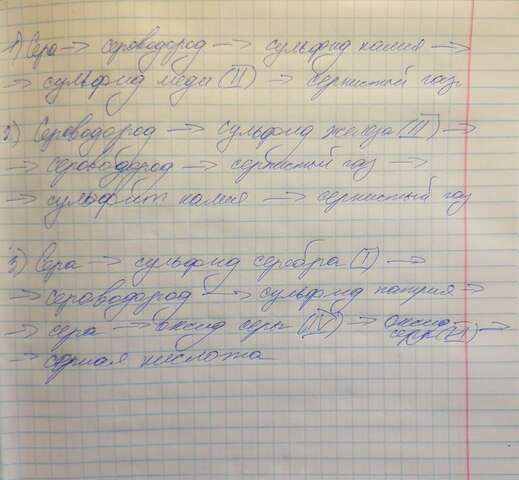 1) Сера → сероводород → сульфид калия →
→ сульфид меди (II) → сернистый газ.
2) Сероводород → сульфид железа (II) →
→ сероводород → сернистый газ →
→ сульфит калия → сернистый газ
3) Сера → сульфид серебра (I) →
→ сероводород → сульфид натрия →
→ сера → оксид серы (IV) → оксид серы (VI) →
→ серная кислота